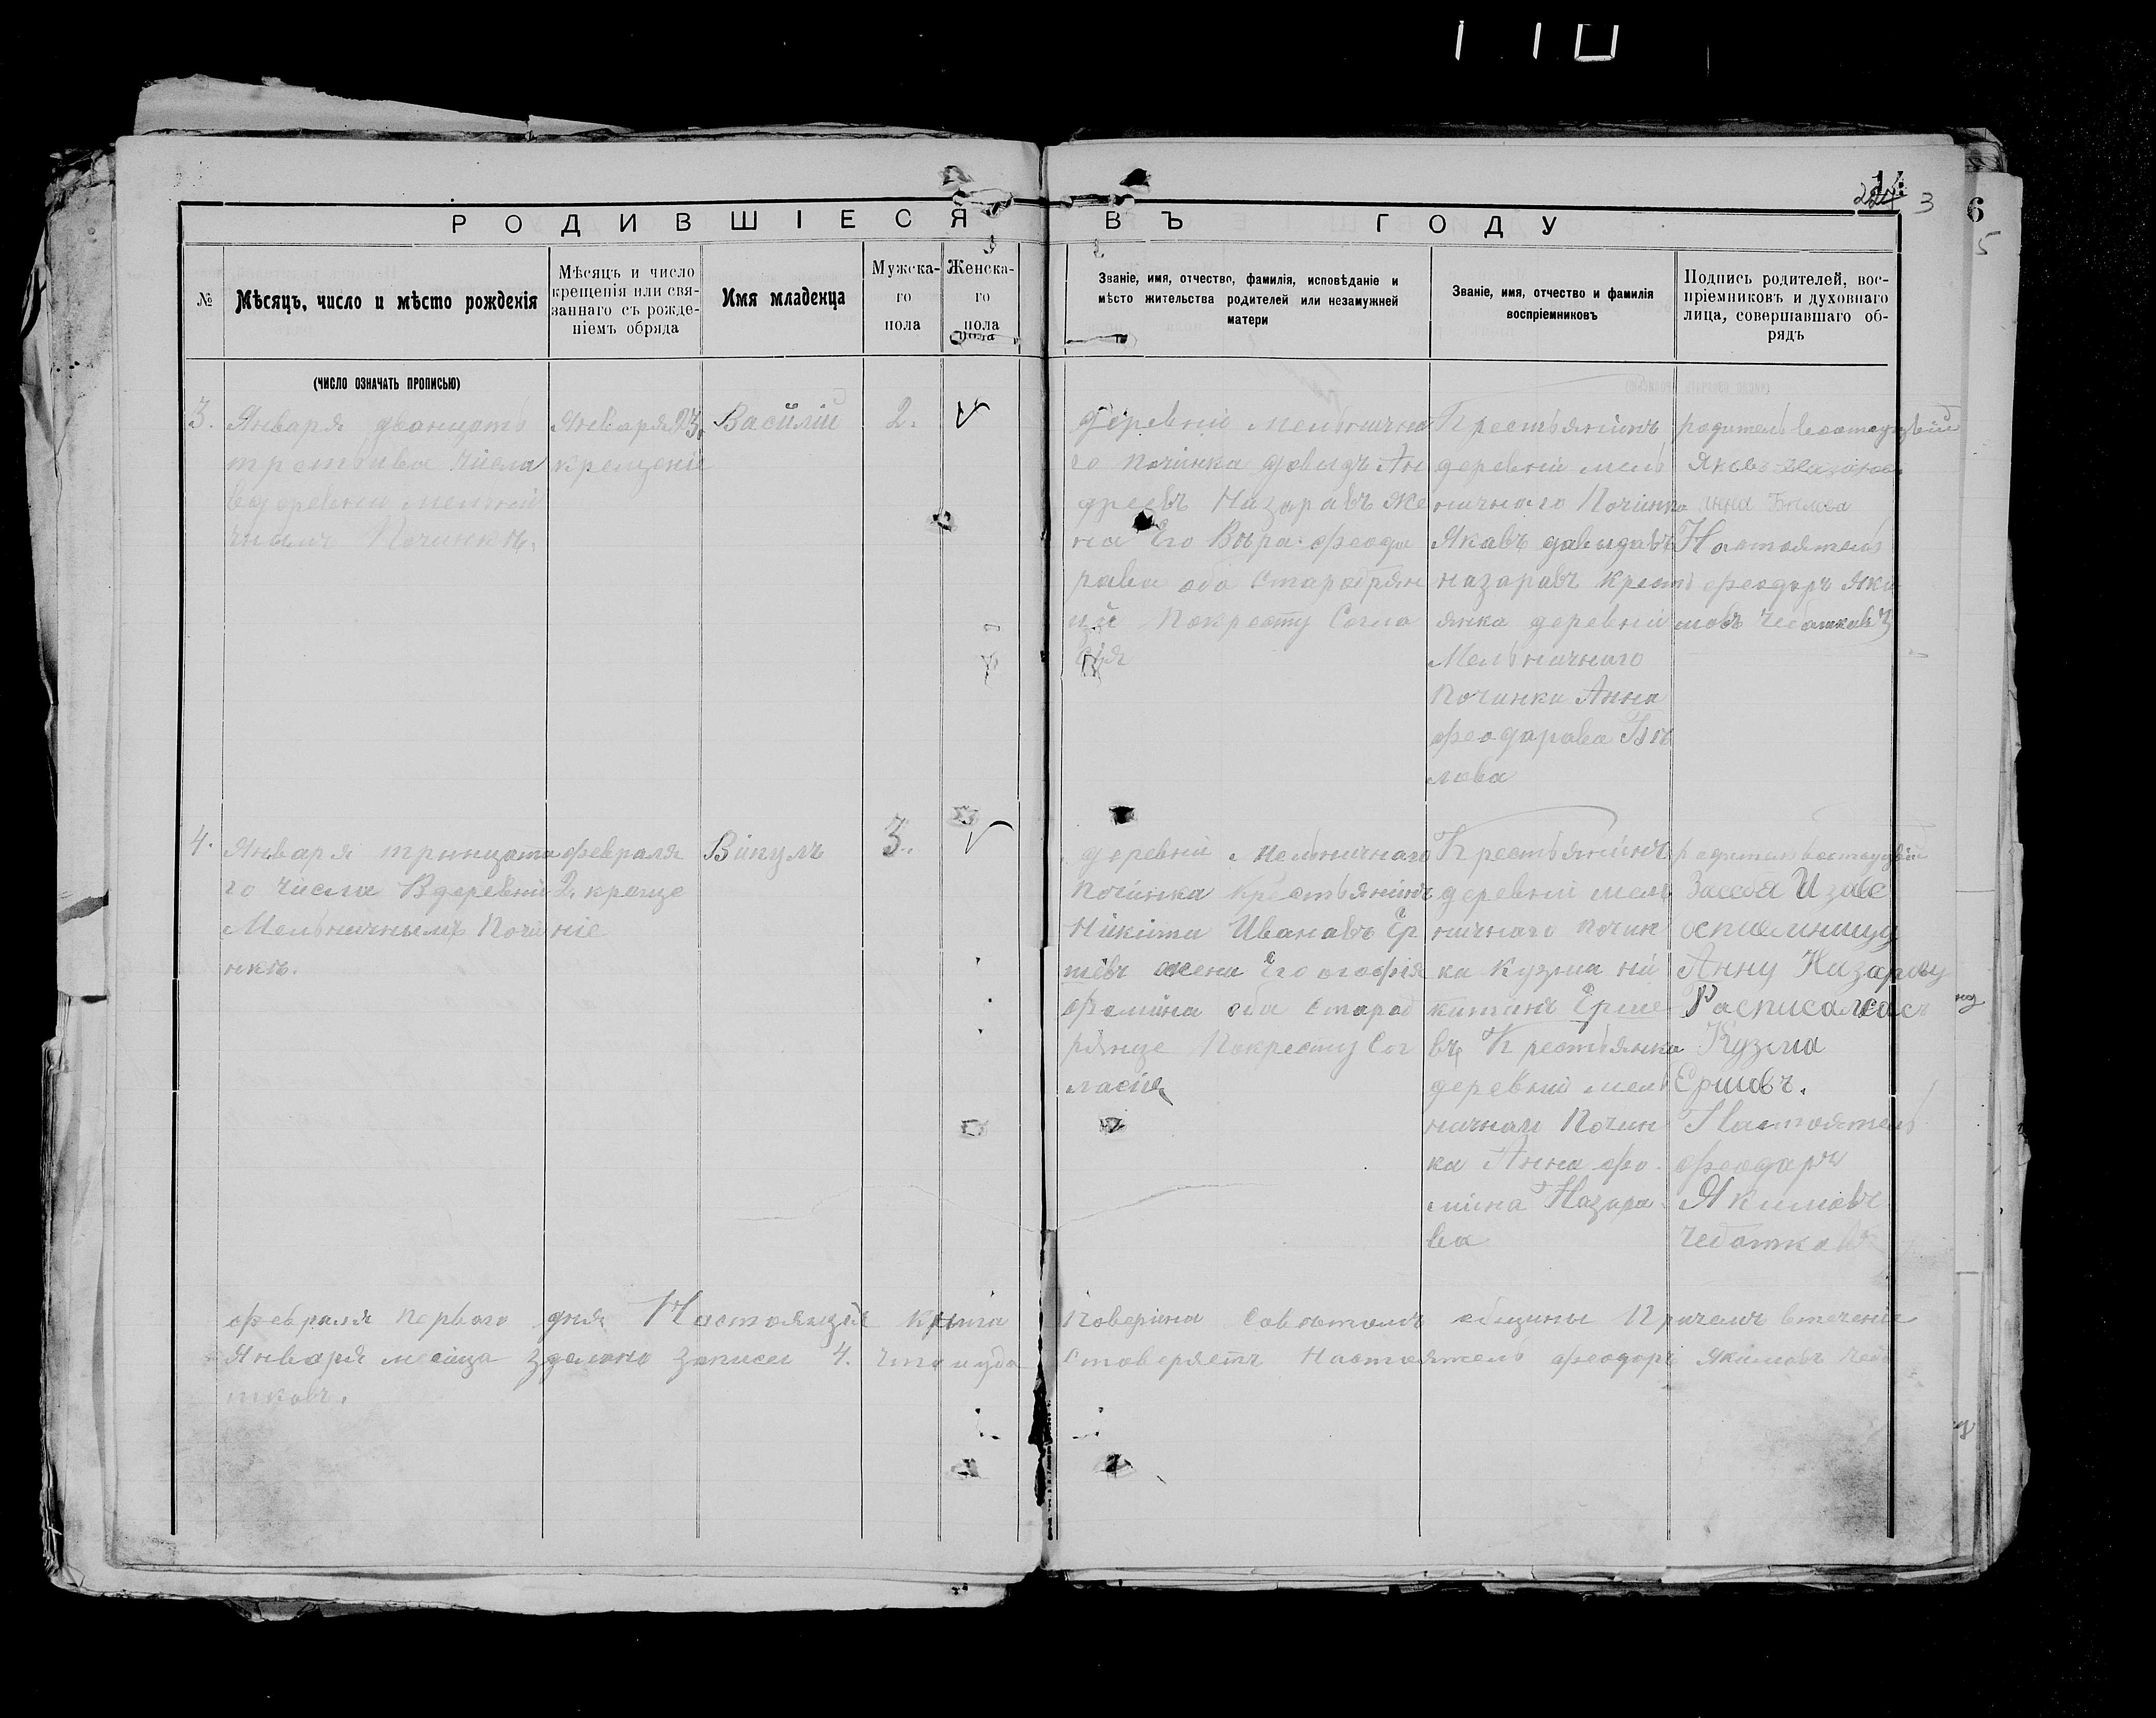 14
224 3
6
5
РОДИВШІЕСЯ ВЪ ГОДУ
№
Мѣсяцъ, число и мѣсто рожденія
Мѣсяцъ и число
крещенія или свя-
заннаго съ рожде-
ніемъ обряда
Имя младенца
Мужска-
го
пола
Женска-
го
пола
Званіе, имя, отчество, фамилія, исповѣданіе и
мѣсто жительства родителей или незамужней
матери
Званіе, имя, отчество и фамилія
воспріемниковъ
Подпись родителей, вос-
пріемниковъ и духовнаго
лица, совершавшаго об-
рядъ
(число означать прописью)
3.
Января дванцать
третьива числа
вдеревни мельни
чномъ Починкѣ.
Января 23.
крещеніе
Василій
2.
деревни мельнична
го починка давыдъ Ан
дреевъ Назаравъ Же
на Его Вѣра феода
рава оба Старобрян
цы Покресту Согла
сія
Крестьянинъ
деревни мель
ничнаго Починка
Якавъ давыдавъ
назаравъ крестъ
янка деревни
Мельничнаго
Починка Анна
феодарава Бѣ
лова
родитель
Яковъ
Анна Бѣлова
Настоятель
феодоръ Яки
мовъ Чебатковъ
4.
Января тринцата
го числа Вдеревни
Мельничнымъ Почи
нкѣ.
февраля
2. креще
ніе
Викулъ
3.
деревни Мельничнаго
починка крестьянинъ
Никита Иванавъ Ер
шевъ жена Его
фомина оба Старад
рянце Покресту Сог
ласія
Крестьянинъ
деревни мель
ничнаго почин
ка Кузма ни
китинъ Ерше
въ Крестьянка
деревни мель
ничнаго Почин
ка Анна фо
мина Назара
ва
родитель
Засебя Изавс
оспиемницу
Анну Назарову
Росписалсась
Кузма
Ершовъ.
Настоятель
феодаръ
Якимовъ
Чебатковъ
февраля первого дня Настоящея книга поверина Советомъ общины Причемъ втечение
Января месица зделано записеи 4. что и удо стоверяетъ Настоятель феодоръ Якимовъ Чеба
тковъ.